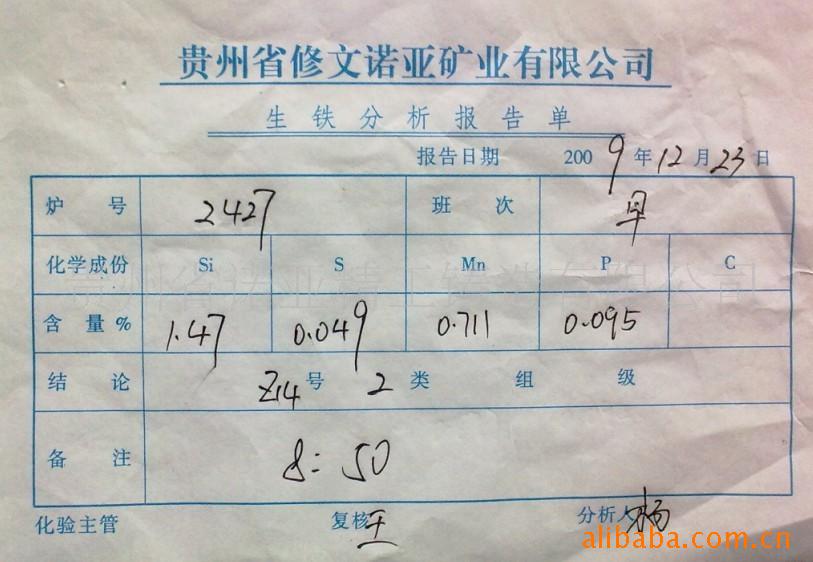 贵州省修文诺亚矿业有限公司
生铁分析报告单
报告日期 2009年12月23日
炉号 2427 班次 早
化学成份 Si S Mn P C
含量% 1.47 0.049 0.711 0.095
结论 Z14号 2类 组 级
备注 8:50
化验主管 复核 王 分析人 杨
alibaba.com.cn